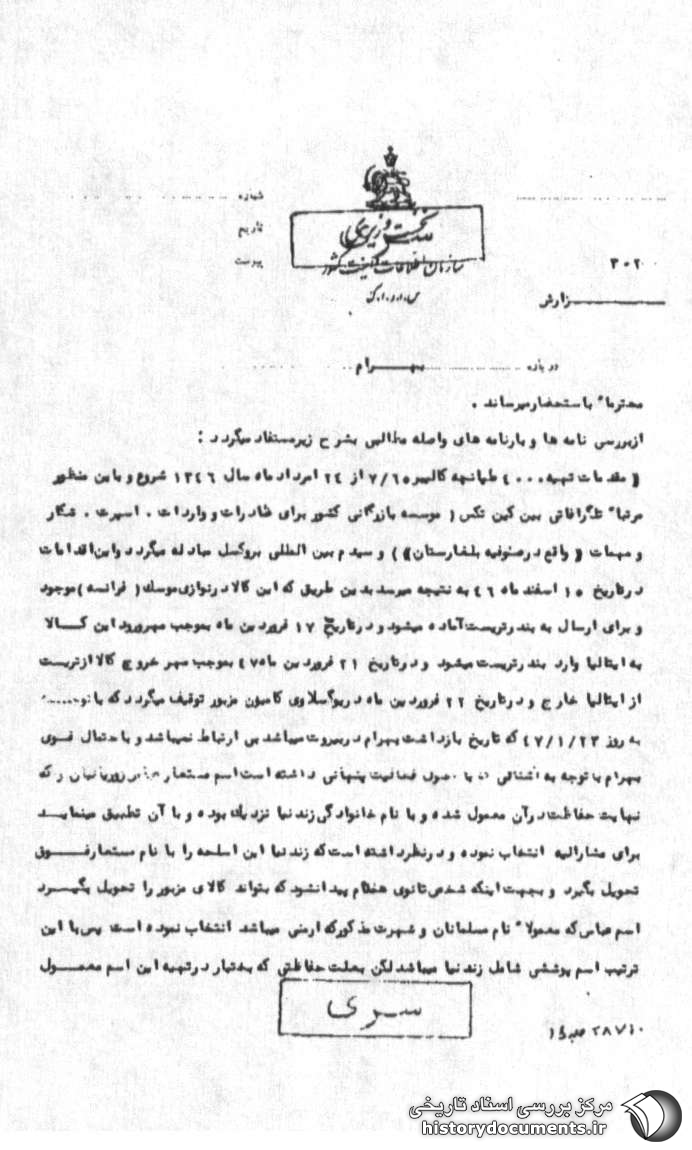 شماره
تاریخ
پیوست
نخست وزیری
سازمان اطلاعات و امنیت کشور
س.ا.و.ا.ک
۳۰۲
گزارش
درباره بهرام
محترما" باستحضار میرساند .
ازبررسی نامه ها و بارنامه های واصله مطالبی بشرح زیرمستفاد میگردد :
( مقدمات تهیه ۴۰۰۰ طپانچه کالیبر ۷/۶۵ از ۲۴ امرداد ماه سال ۱۳۴۶ شروع و باین منظور
مرتبا" تلگرافاتی بین کین تکس ( موسسه بازرگانی کشور برای صادرات و واردات . اسپرت . شکار
و مهمات ( واقع درصوفیه بلغارستان )) و سیدم بین المللی بروکسل مبادله میگردد واین اقدامات
درتاریخ ۱۵ اسفند ماه ۴۶ به نتیجه میرسد بدین طریق که این کالا درنوازی موسک ( فرانسه ) موجود
و برای ارسال به بندرتریست آماده میشود و درتاریخ ۱۷ فروردین ماه بموجب مهرورود این کالا
به ایتالیا وارد بندرتریست میشود و درتاریخ ۲۱ فروردین ماه ۴۷ بموجب مهر خروج کالا ازتریست
از ایتالیا خارج و درتاریخ ۲۲ فروردین ماه دریوگسلاوی کامیون مزبور توقیف میگردد که با توجه
به روز ۴۷/۱/۲۳ که تاریخ بازداشت بهرام دربیروت میباشد بی ارتباط نمیباشد و باحتمال قوی
بهرام باتوجه به آشنائی که با اصول فعالیت پنهانی داشته است اسم مستعار زوریانیان را که
نهایت حفاظت درآن معمول شده و با نام خانوادگی زندنیا نزدیک بوده و با آن تطبیق مینماید
برای مشارالیه انتخاب نموده و درنظرداشته است که زندنیا این اسلحه را با نام مستعارفوق
تحویل بگیرد و بجهت اینکه شخص ثانوی همنام پیدانشود که بتواند کالای مزبور را تحویل بگیرد
اسم عباس که معمولا" نام مسلمانان و شهرت مذکورکه ارمنی میباشد انتخاب نموده است پس با این
ترتیب اسم پوششی شامل زندنیا میباشد لکن بعلت حفاظتی که بختیار درتهیه این اسم معمول
سری
مرکز بررسی اسناد تاریخی
historydocuments.ir